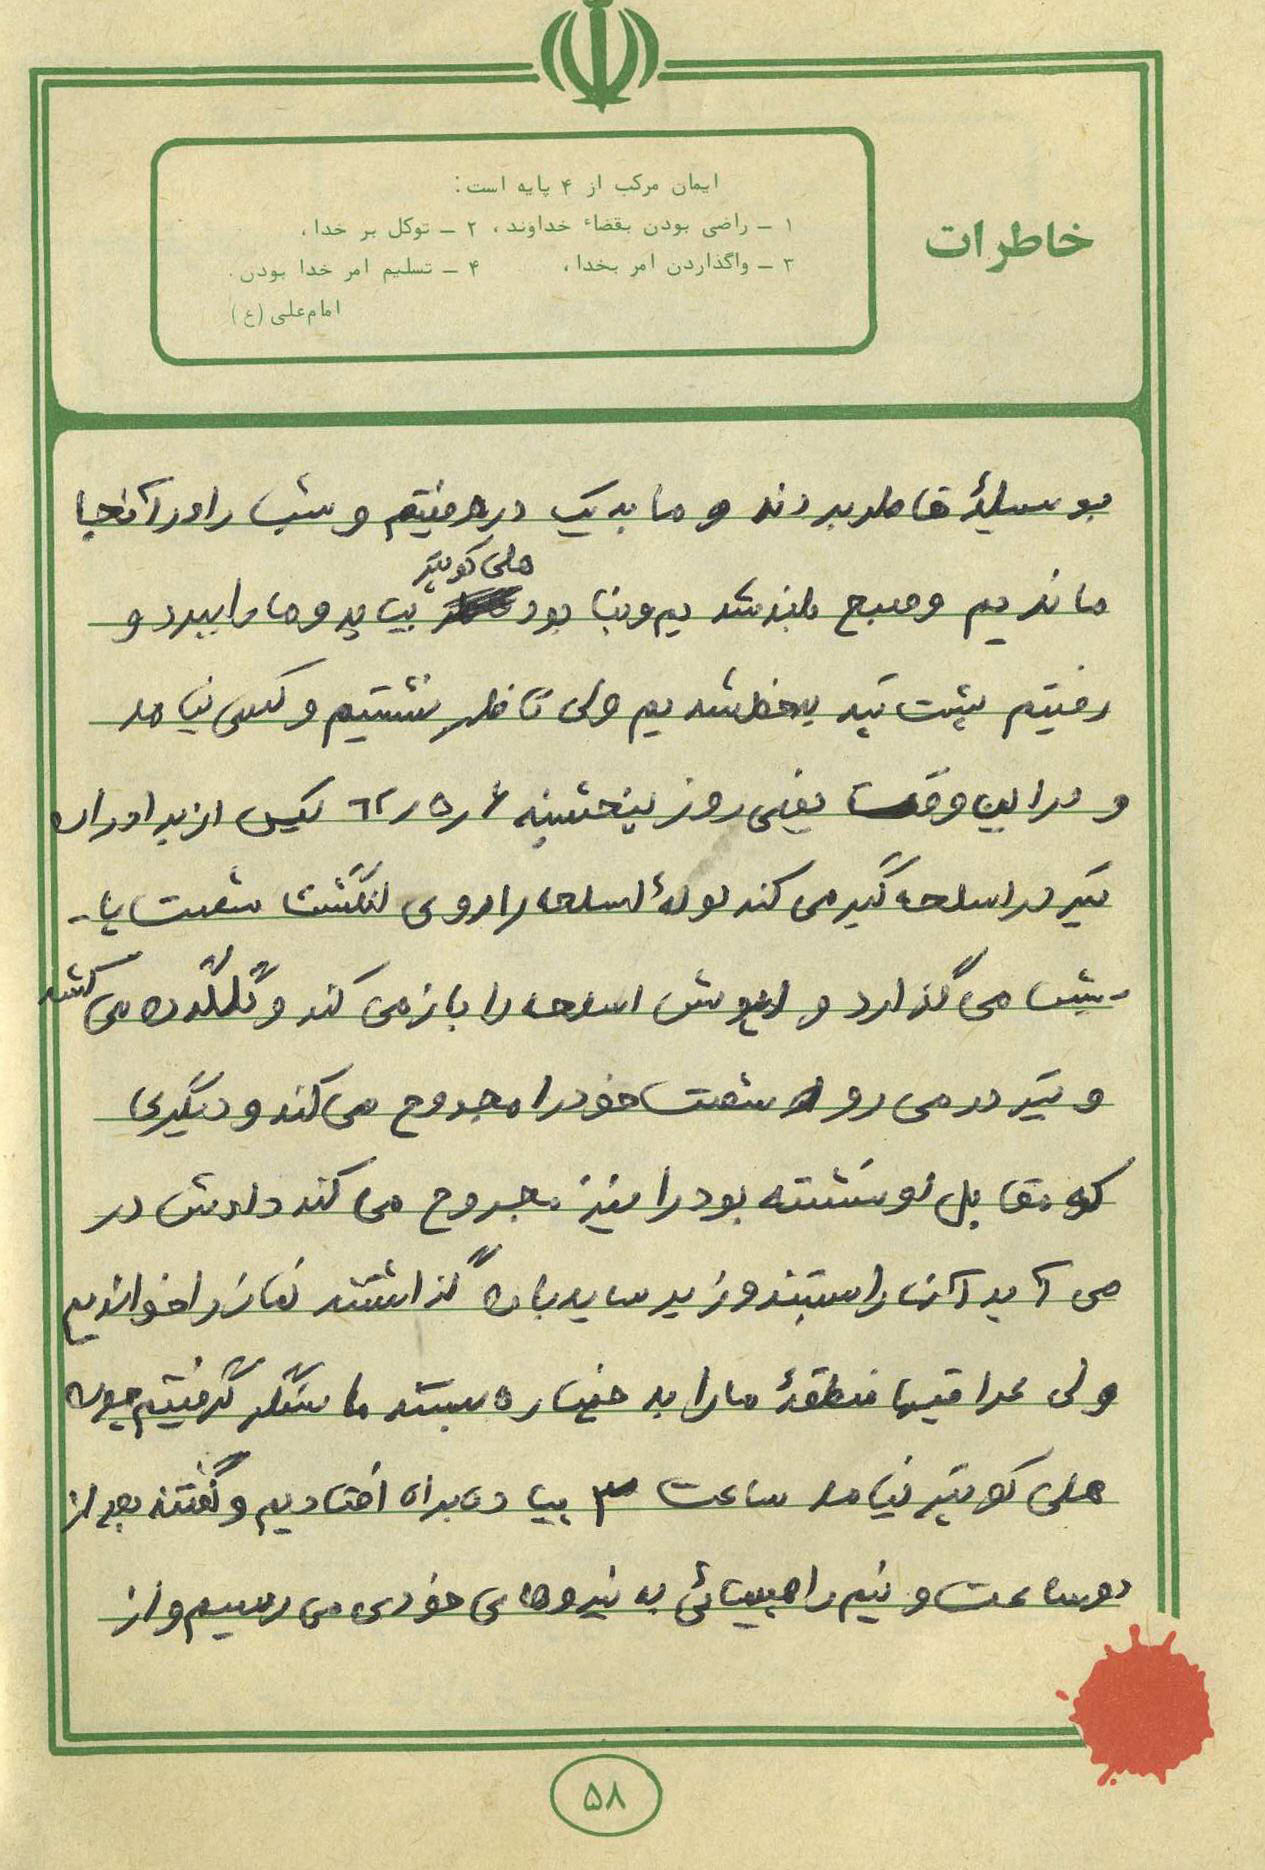 خاطرات
ایمان مرکب از ۴ پایه است:
۱ ـ راضی بودن بقضاء خداوند، ۲ ـ توکل بر خدا،
۳ ـ واگذاردن امر بخدا، ۴ ـ تسلیم امر خدا بودن.
امام‌علی (ع)
بوسیلهٔ قاطر بردند و ما به یک دره رفتیم و شب را در آنجا
ماندیم و صبح بلند شدیم و بنا بود هلی کوپتر بیاید و ما را ببرد و
رفتیم پشت تپه بخط شدیم ولی تا ظهر نشستیم و کسی نیامد
و در این وقت یعنی روز پنجشنبه ۶ر۵ر۶۲ یکی از برادران
تیر در اسلحه گیر می کند لولهٔ اسلحه را روی انگشت شصت پا-
-یش می گذارد و اسلحه را باز می کند و گلنگدن می کشد
و تیر در می رود شصت خود را مجروح می کند و دیگری
که مقابل او نشسته بود را نیز مجروح می کند دادش در
می آید آن را بستند و زیر سایه بان گذاشتند نماز را خواندیم
ولی عراقیها منطقهٔ ما را به خمپاره بستند ما سنگر گرفتیم چون
هلی کوپتر نیامد ساعت ۳ پیاده براه افتادیم و گفتند بعد از
دو ساعت و نیم راهپیمائی به نیروهای خودی می رسیم و از
۵۸